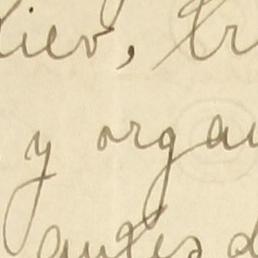 Kiev, tr
y orga
antes d